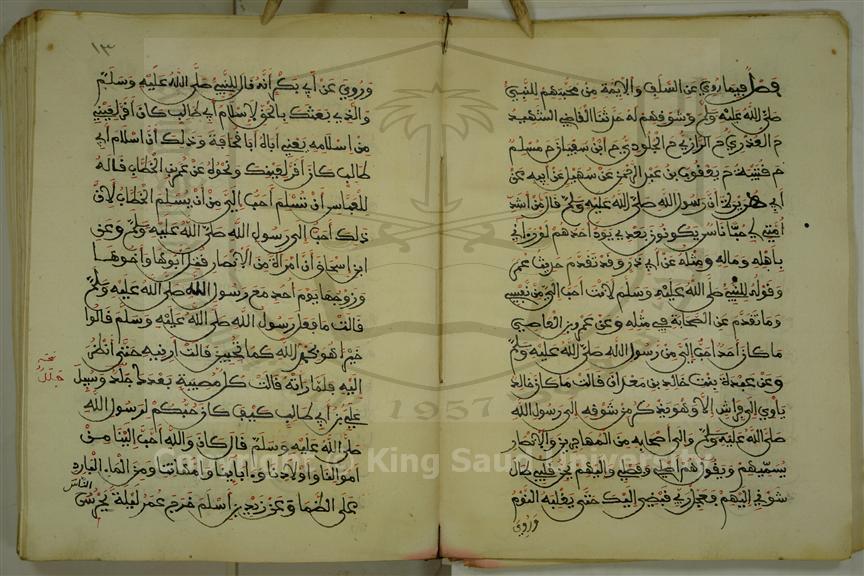 فصل فيما روي عن السلف والايمة من محبتهم للنبي
صلى الله عليه وسلم وشوفهم له حدثنا القاضي الشهيد
نا العذري نا الرازي نا الجلودي نا ابن سفيان نا مسلم
نا قتيبة نا يعقوب بن عبد الرحمن عن سهيل عن ابيه عن
ابي هريرة أن رسول الله صلى الله عليه وسلم قال من أشد
أمتي لي حبا ناس يكونون بعدي يود احدهم لو رءاني
بأهله وماله ومثله عن أبي ذر وقد تقدم حديث عمر
وقوله للنبي صلى الله عليه وسلم لانت أحب الي من نفسي
وما تقدم عن الصحابة في مثله وعن عمرو بن العاصي
ما كان أحد أحب الي من رسول الله صلى الله عليه وسلم
وعن عبدة بنت خالد بن معدان قالت ما كان خالد
ياوي الى فراش إلا وهو يذكر من شوقه الى رسول الله
صلى الله عليه وسلم والى أصحابه من المهاجرين والانصار
يسميهم ويقول هم أصلي وفصلي واليهم يحن قلبي طال
شوقي اليهم فعجل رب قبضي اليك حتى يغلبه النوم
وروي
١٣
وروي عن أبي بكر أنه قال للنبي صلى الله عليه وسلم
والذي بعثك بالحق لاسلام أبي طالب كان أقر لعيني
من إسلامه يعني أباه أبا قحافة وذلك أن اسلام أبي
طالب كان أقر لعينك ونحوه عن عمر بن الخطاب قاله
للعباس أن تسلم أحب الي من أن يسلم الخطاب لأن
ذلك أحب الى رسول الله صلى الله عليه وسلم وعن
ابن اسحاق أن امرأة من الانصار قتل أبوها وأخوها
وزوجها يوم أحد مع رسول الله صلى الله عليه وسلم
فقالت ما فعل رسول الله صلى الله عليه وسلم قالوا
خيرا هو بحمد الله كما تحبين قالت أرنيه حتى أنظر
إليه فلما رأته قالت كل مصيبة بعدك جلل وسيل
علي بن أبي طالب كيف كان حبكم لرسول الله
صلى الله عليه وسلم قال كان والله أحب الينا من
اموالنا وأولادنا وءابائنا وأمهاتنا ومن الماء البارد
على الظما وعن زيد بن أسلم خرج عمر ليلة يحرس
الناس
Copyright © King Saud University
1957